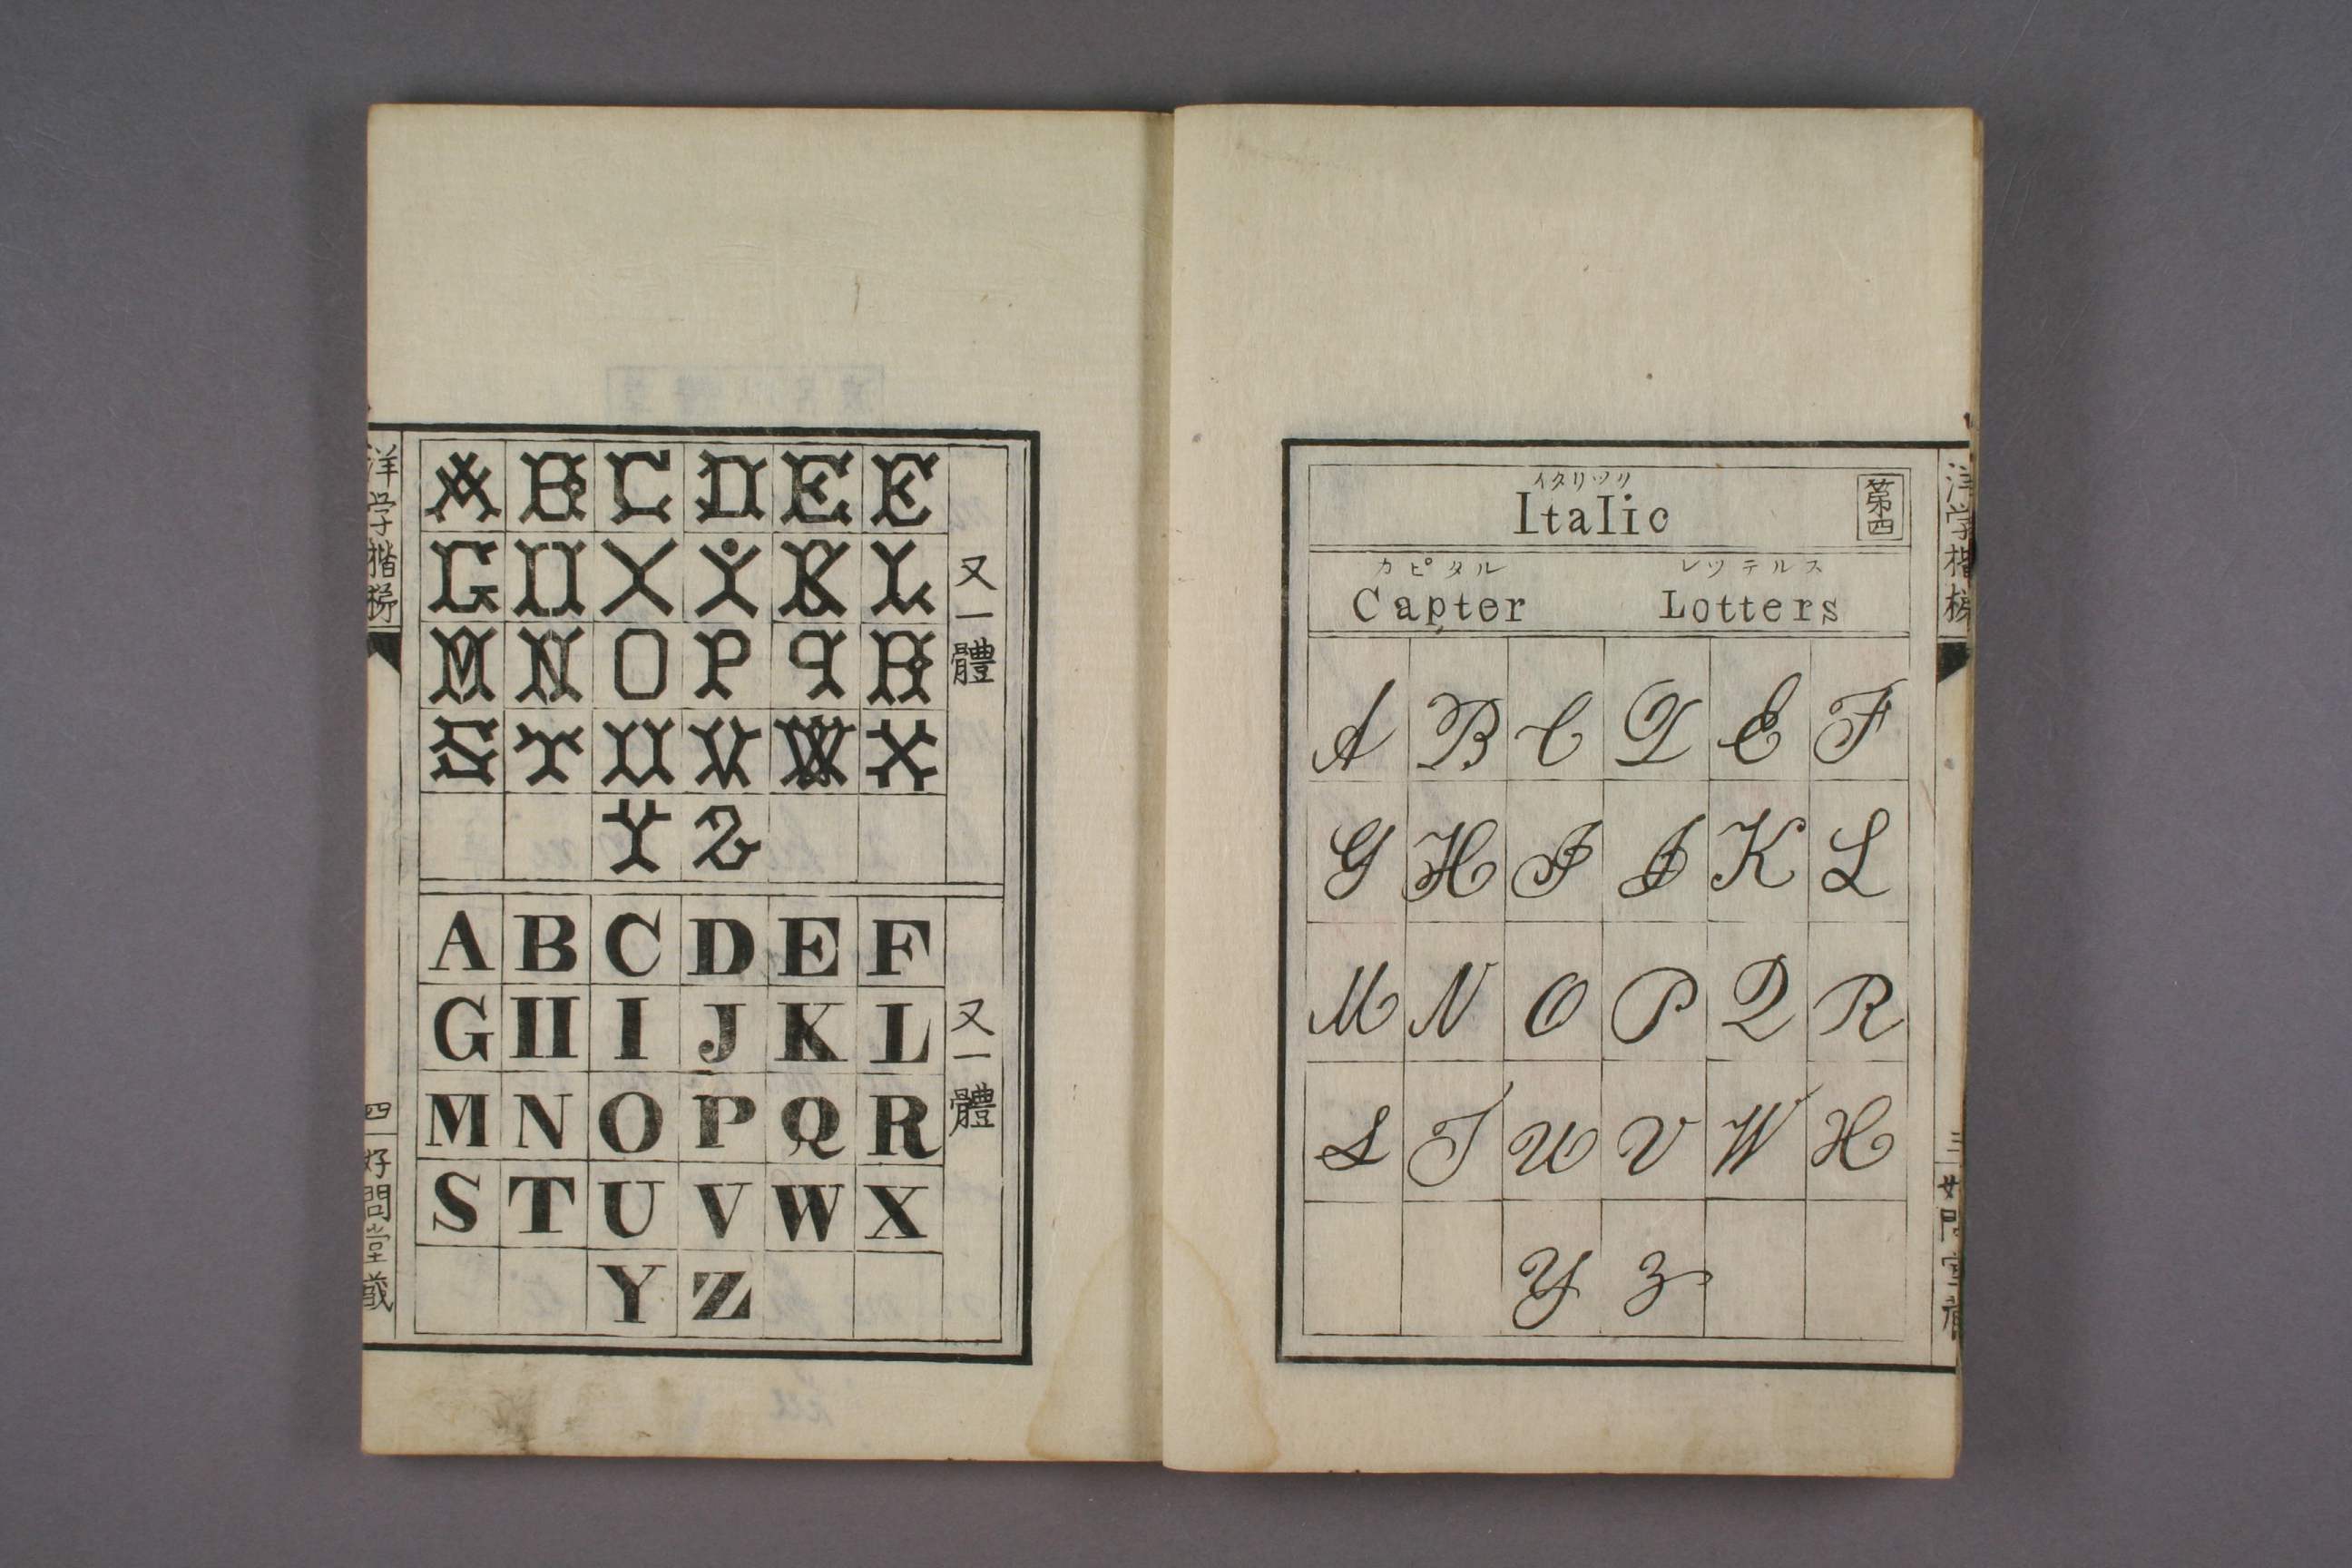 第四
イタリツリ
Italic
カピタル レツテルス
Capter Lotters
A B C D E F
G H I J K L
M N O P Q R
S T U V W X
Y Z
洋学楷梯
三 好問堂蔵
又一體
A B C D E F
G H I J K L
M N O P Q R
S T U V W X
Y Z
又一體
A B C D E F
G H I J K L
M N O P Q R
S T U V W X
Y Z
洋学楷梯
四 好問堂蔵